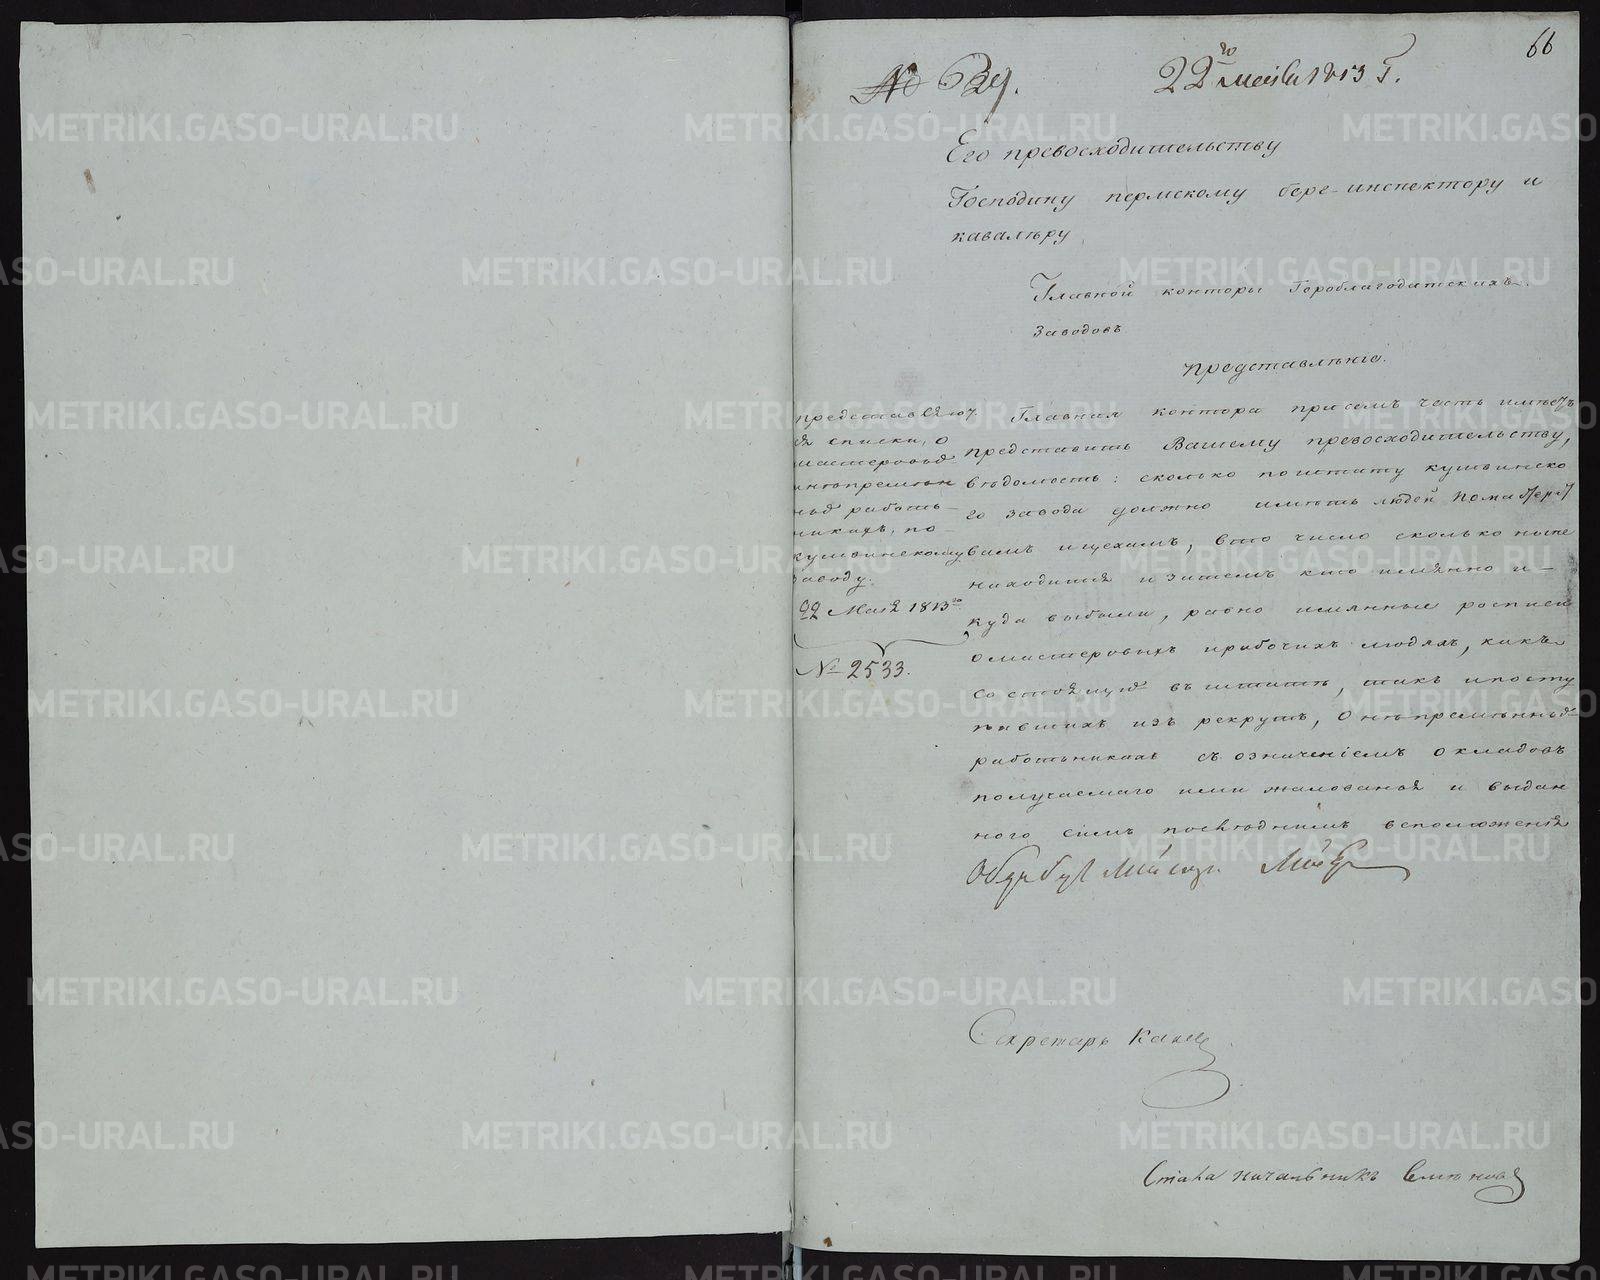 66
№
22го 1813 г.
Его превосходительству
Господину пермскому берг-инспектору и
кавалѣру
Главной конторы Гороблагодатскихъ
заводовъ
представлѣніе.
представляют
ся списки, о
мастеровых
и нѣпремѣн
ных работ-
никахъ, по
кушвинскому
заводу.
22 Мая 1813го
№ 2533.
Главная контора при семъ честь имѣетъ
представить Вашему превосходительству,
вѣдомость: сколько по штату кушвинско
го завода должно имѣть людей
и цехамъ, в то число сколько ныне
находится и затемъ кто имянно и-
куда выбыли, равно имянные росписи
о мастеровыхъ и рабочихъ людяхъ, какъ
состоящих въ штатѣ, такъ и посту
пившихъ изъ рекрутъ, о нѣпремѣнных
работникахъ съ означеніемъ окладовъ
получаемаго ими жалованья и выдан
ного симъ послѣднимъ вспоможенія
Секретарь
начальникъ
METRIKI.GASO-URAL.RU